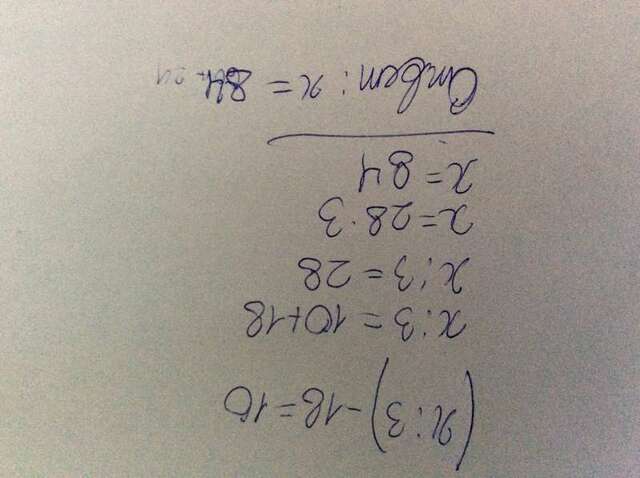 (x:3)-18=10
x:3=10+18
x:3=28
x=28·3
x=84
Ответ: x=84